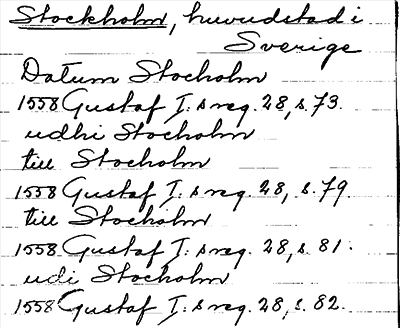 Stockholm, huvudstad i
Sverige
Datum Stocholm
1558 Gustaf I:s reg. 28, s. 73.
udhi Stocholm
till Stocholm
1558 Gustaf I:s reg. 28, s. 79
till Stocholm
1558 Gustaf I:s reg. 28, s. 81.
udi Stocholm
1558 Gustaf I:s reg. 28, s. 82.